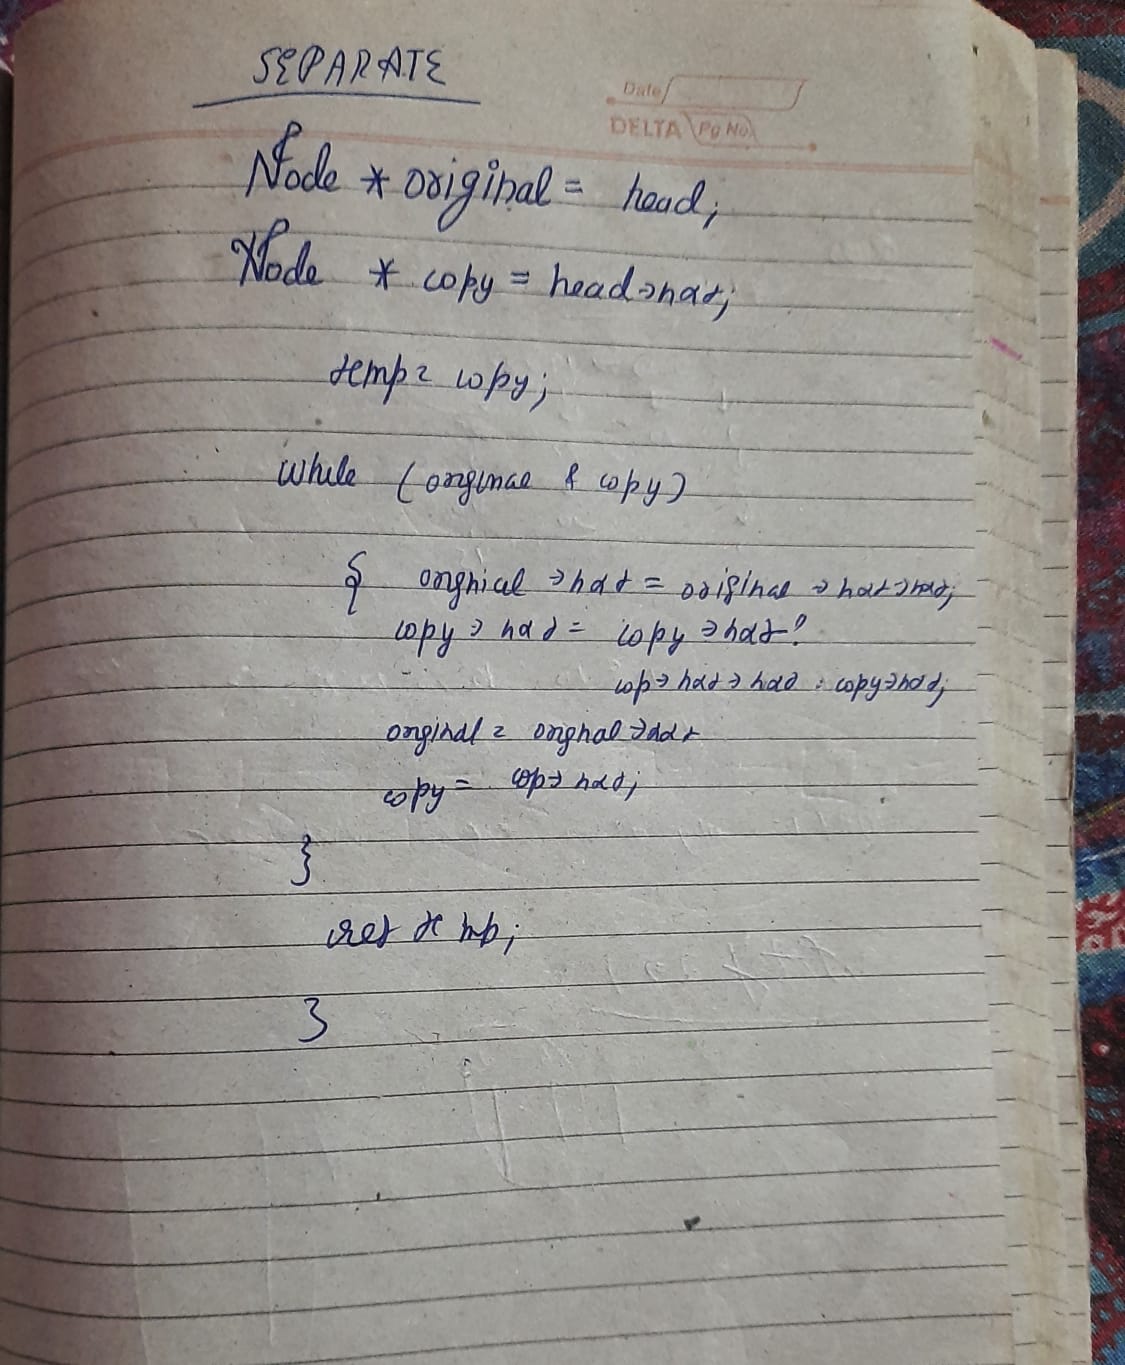 SEPARATE
Date
DELTA Pg No.
Node * original = head;
Node * copy = head->next;
temp = copy;
while (original & copy)
{ original -> next = original -> next->next;
copy -> next = copy -> next ?
cop-> next -> next : copy->next;
original = orignal -> next
copy = cop-> next;
}
ret temp;
}